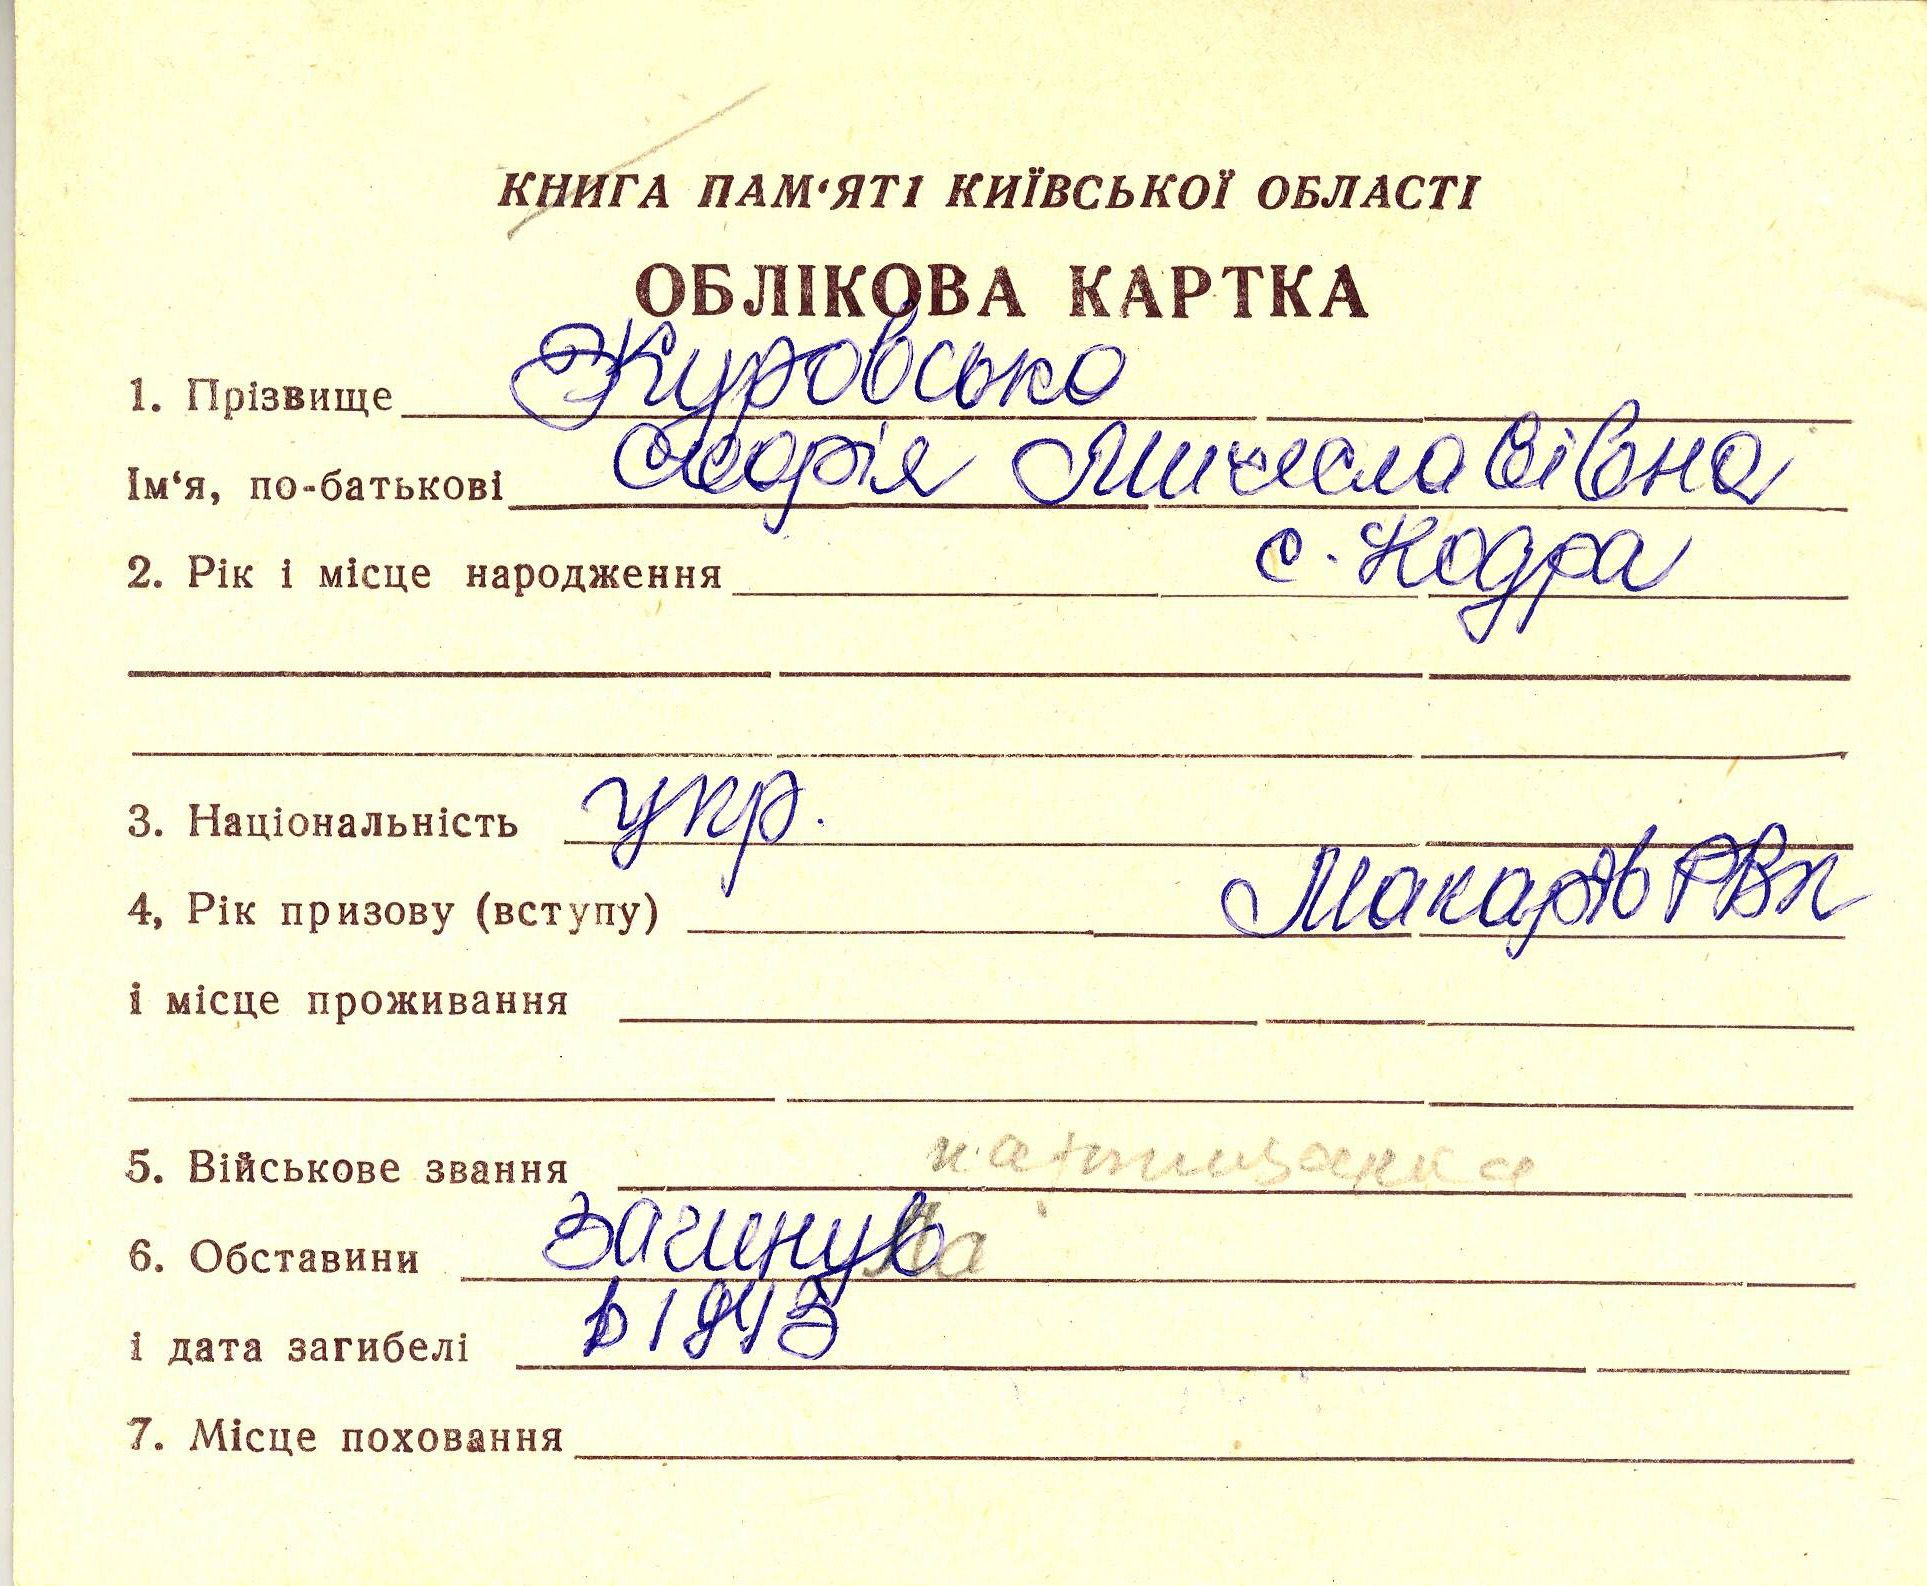 КНИГА ПАМ‘ЯТІ КИЇВСЬКОЇ ОБЛАСТІ
ОБЛІКОВА КАРТКА
1. Прізвище Журовсько
Ім‘я, по-батькові Марія Мичеславівна
2. Рік і місце народження с. Нодра
3. Національність укр.
4, Рік призову (вступу) Макарів РВК
і місце проживання
5. Військове звання партизанка
6. Обставини загинула
і дата загибелі в 1943
7. Місце поховання